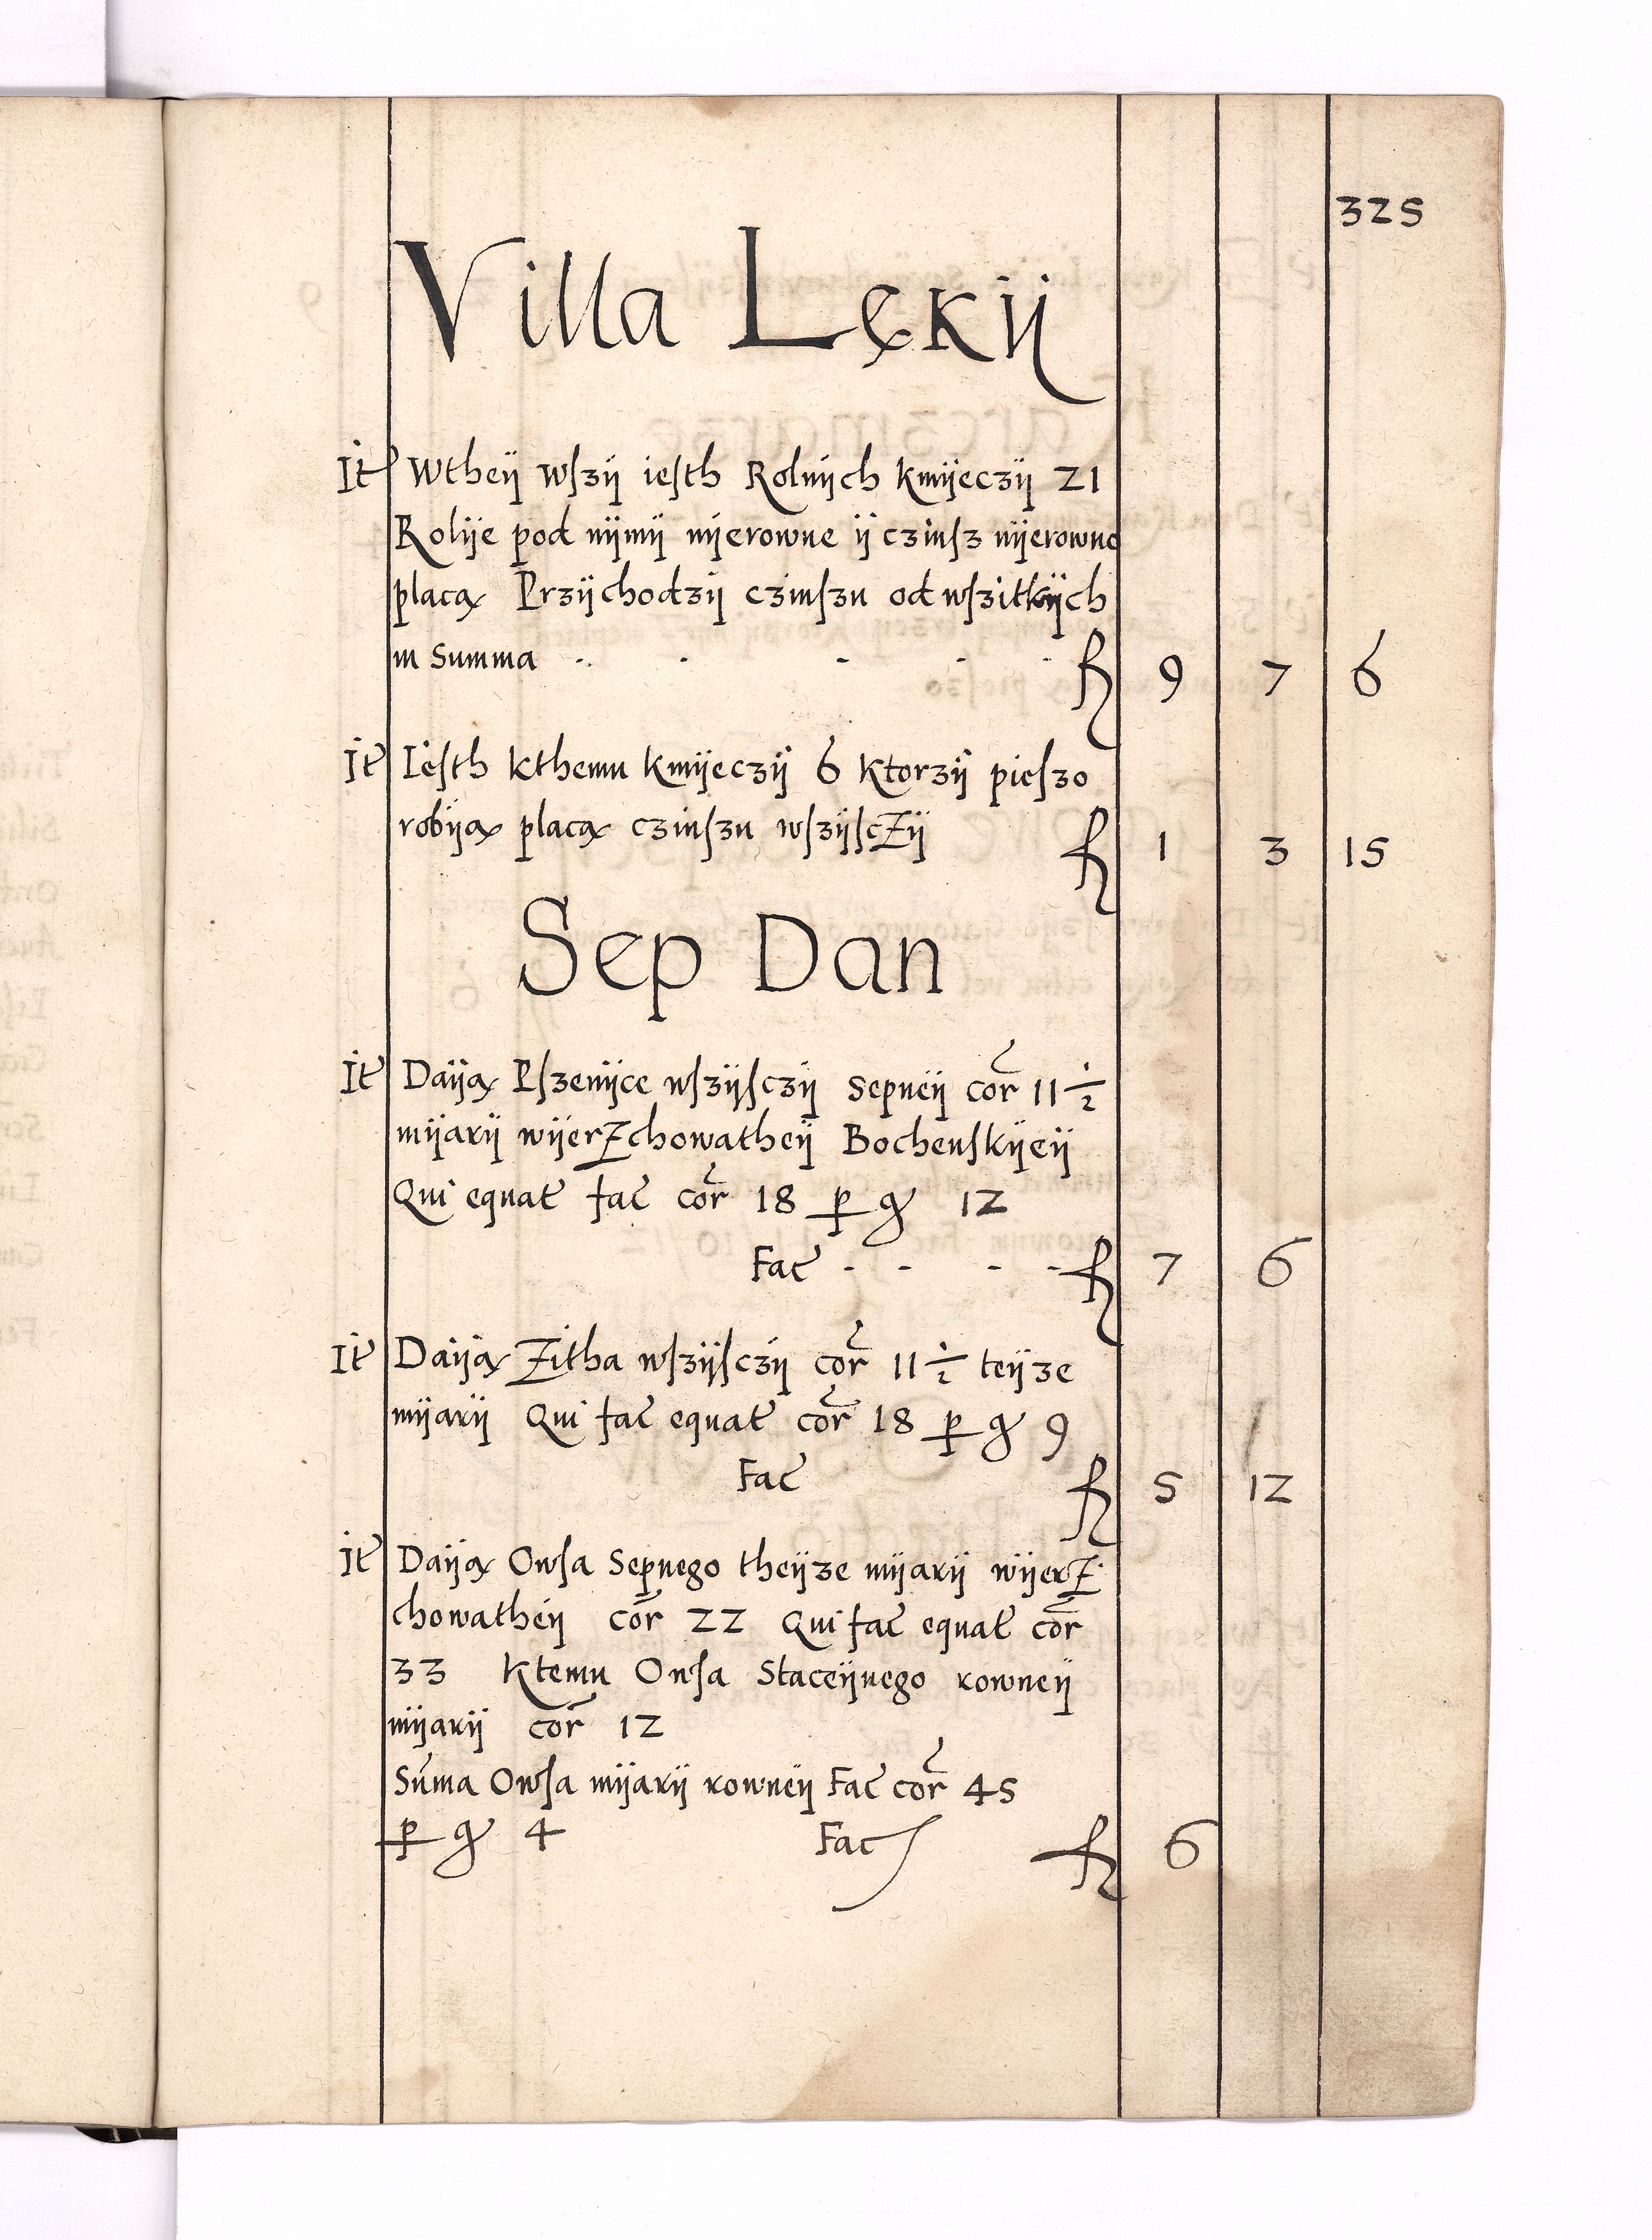 325
Villa Lękÿ
It Wtheÿ wſzÿ ieſth Rolnÿch kmÿeczÿ 21
Rolÿe pod nÿmÿ nÿerowne ÿ czinſz nÿerowno
placą Przÿchodzÿ czinſzu od wſzitkÿch
in Summa - - - - - f 9 7 6
It Ieſth kthemu kmÿeczÿ 6 ktorzÿ pieſzo
robÿą placą czinſzu wſzÿſcZÿ f 1 3 15
Sep Dan
It Daÿą Pſzenÿce wſzÿſczÿ sepneÿ cor̃ 11 1/2
mÿarÿ wÿerZchowatheÿ Bochenſkÿeÿ
Qui equat̃ fac̃ cor̃ 18 p gͦ 12
Fac̃ - - - - f 7 6
It Daÿą Zitha wſzÿſczÿ cor̃ 11 1/2 teÿze
mÿarÿ Qui fac̃ equat̃ cor̃ 18 p gͦ 9
Fac̃ f 5 12
It Daÿą Owſa Sepnego theÿze mÿarÿ wÿerZ
chowatheÿ cor̃ 22 Qui fac̃ equat̃ cor̃
33 Ktemu Owſa Staceÿnego rowneÿ
mÿarÿ cor̃ 12
Sum̃a Owſa mÿarÿ rowneÿ Fac̃ cor̃ 45
p gͦ 4 Fac f 6